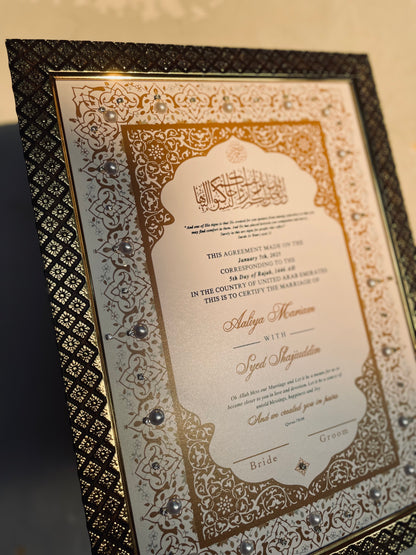 "And one of His signs is that He created for you spouses from among yourselves so that you
may find comfort in them. And He has placed between you compassion and mercy.
Surely in this are signs for people who reflect."
THIS AGREEMENT MADE ON THE
January 5th, 2025
CORRESPONDING TO THE
5th Day of Rajab, 1446 AH
IN THE COUNTRY OF UNITED ARAB EMIRATES
THIS IS TO CERTIFY THE MARRIAGE OF
Aaliya Mariam
WITH
Syed Shajauddin
Oh Allah bless our Marriage and Let it be a means to
become closer to you in love and devotion. Let it be countless
untold blessings, happiness and Joy
And we created you in pairs
Quran 78:08
Bride
Groom